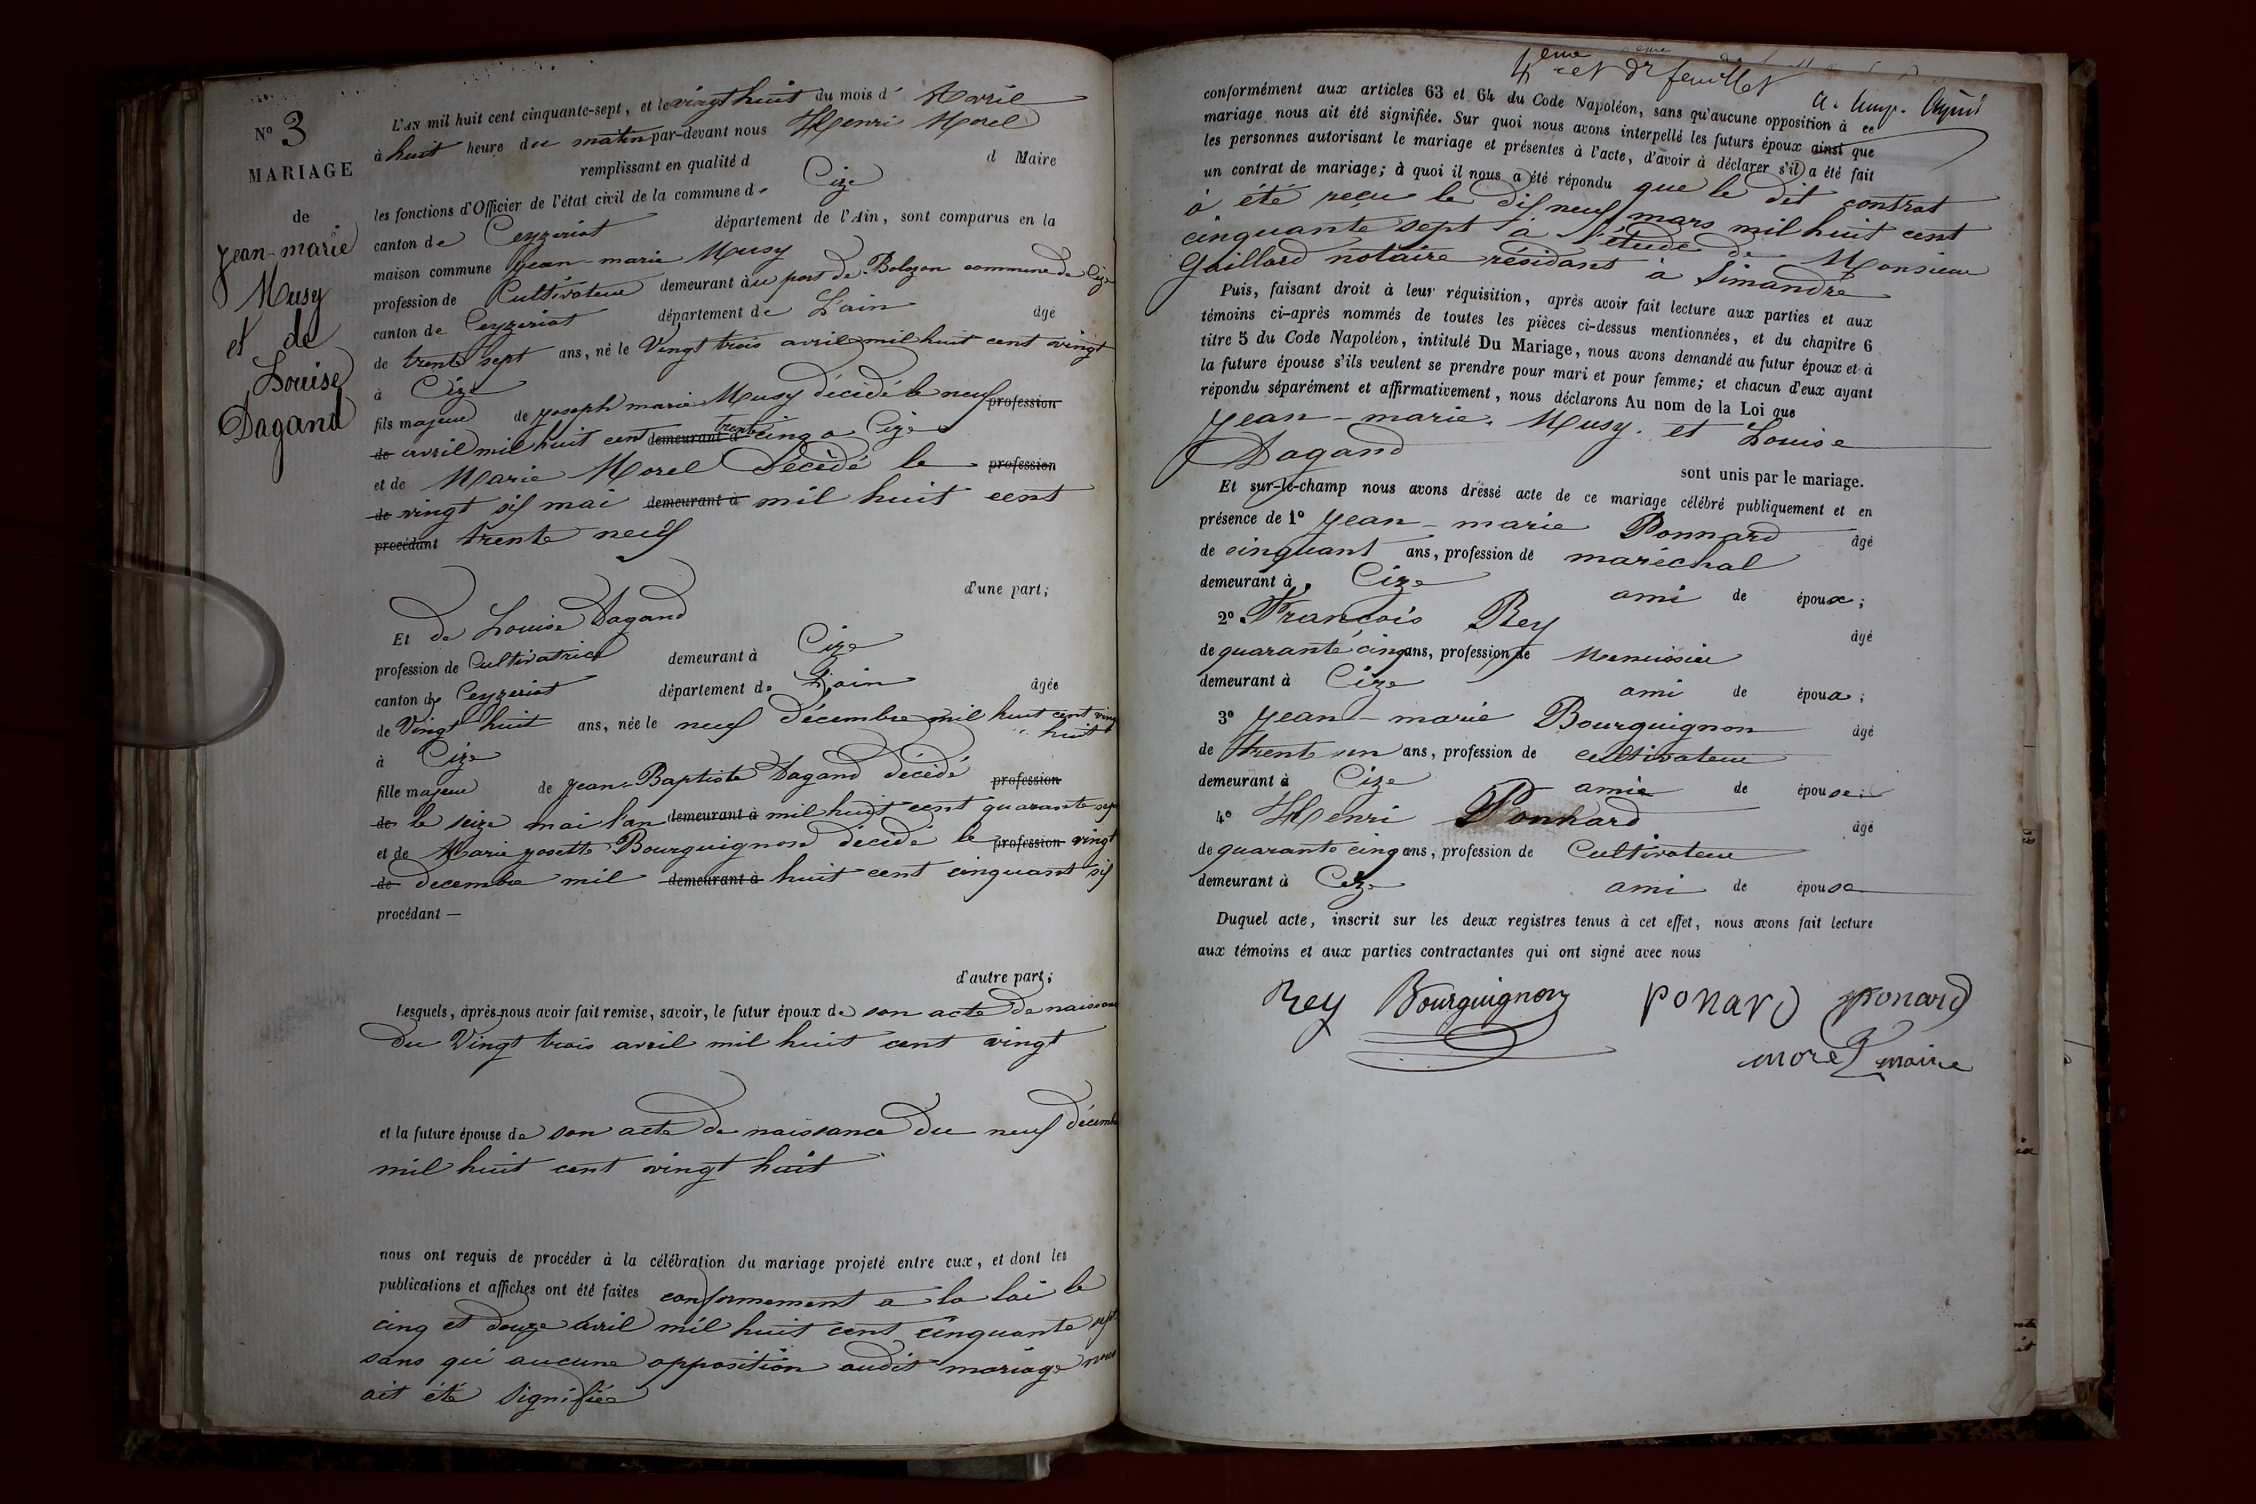 N° 3
MARIAGE
de
Jean-marie
Musy
et de
Louise
Dagand
L'AN mil huit cent cinquante-sept, et le vingt huit du mois d' Avril
à huit heure du matin par-devant nous Henri Morel
remplissant en qualité d d Maire
les fonctions d'Officier de l'état civil de la commune de Cize
canton de Ceyzeriat département de l'Ain, sont comparus en la
maison commune Jean-marie Musy
profession de Cultivateur demeurant à u port de Bolozon commune de Cize
canton de Ceyzeriat département de L'ain âgé
de trente sept ans, né le Vingt trois avril mil huit cent vingt
à Cize
fils majeur de joseph marie Musy décédé le neuf profession
de avril mil huit cent demeurant à trente cinq a Cize
et de Marie Morel Décédé le profession
de vingt six mai demeurant à mil huit cent
procédant trente neuf
d'une part;
Et de Louise Dagand
profession de Cultivatrice demeurant à Cize
canton de Ceyzeriat département de L'ain âgée
de Vingt huit ans, née le neuf décembre mil huit cent vingt
huit
à Cize
fille majeur de Jean-Baptiste Dagand décédé profession
de le seize mai l'an demeurant à mil huit cent quarante sept
et de Marie josette Bourguignon décédé le profession vingt
de decembre mil demeurant à huit cent cinquant six
procédant —
d'autre part;
Lesquels, après nous avoir fait remise, savoir, le futur époux de son acte de naissance
du Vingt trois avril mil huit cent vingt
et la future épouse de son acte de naissance du neuf décembre
mil huit cent vingt huit
nous ont requis de procéder à la célébration du mariage projeté entre eux, et dont les
publications et affiches ont été faites conformement a la loi le
cinq et douze avril mil huit cent cinquante sept
sans qu'aucune opposition audit mariage nous
ait été signifiée
4eme et dr feuillet
conformément aux articles 63 et 64 du Code Napoléon, sans qu'aucune opposition à ce
mariage nous ait été signifiée. Sur quoi nous avons interpellé les futurs époux ainsi que
les personnes autorisant le mariage et présentes à l'acte, d'avoir à déclarer s'il a été fait
un contrat de mariage; à quoi il nous a été répondu que le dit contrat
à été reçu le dix neuf mars mil huit cent
cinquante sept a l'étude de Monsieur
Gaillard notaire résidant à Simandre
Puis, faisant droit à leur réquisition, après avoir fait lecture aux parties et aux
témoins ci-après nommés de toutes les pièces ci-dessus mentionnées, et du chapitre 6
titre 5 du Code Napoléon, intitulé Du Mariage, nous avons demandé au futur époux et à
la future épouse s'ils veulent se prendre pour mari et pour femme; et chacun d'eux ayant
répondu séparément et affirmativement, nous déclarons Au nom de la Loi que
Jean-marie Musy et Louise
Dagand
sont unis par le mariage.
Et sur-le-champ nous avons dressé acte de ce mariage célébré publiquement et en
présence de 1° Jean-marie Ponnard âgé
de cinquant ans, profession de maréchal
demeurant à Cize ami de époux;
2° François Rey âgé
de quarante cinq ans, profession de Menuisier
demeurant à Cize ami de époux;
3° Jean-marie Bourguignon âgé
de trente un ans, profession de cultivateur
demeurant à Cize amie de épouse;
4° Henri Ponnard âgé
de quarante cinq ans, profession de Cultivateur
demeurant à Cize ami de épouse
Duquel acte, inscrit sur les deux registres tenus à cet effet, nous avons fait lecture
aux témoins et aux parties contractantes qui ont signé avec nous
Rey Bourguignon Ponard ponard
morel maire